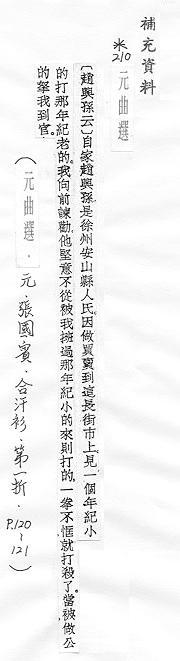 補充資料
米210 元曲選
〔趙興孫云〕自家趙興孫是徐州安山縣人氏因做買賣到這長街市上見一個年紀小
的打那年紀老的我向前諫勸他堅意不從被我搪過那年紀小的來則打的一拳不恇就打殺了當被做公
的拏我到官。
(元曲選·元·張國賓·合汗衫·第一折·P.120~121)